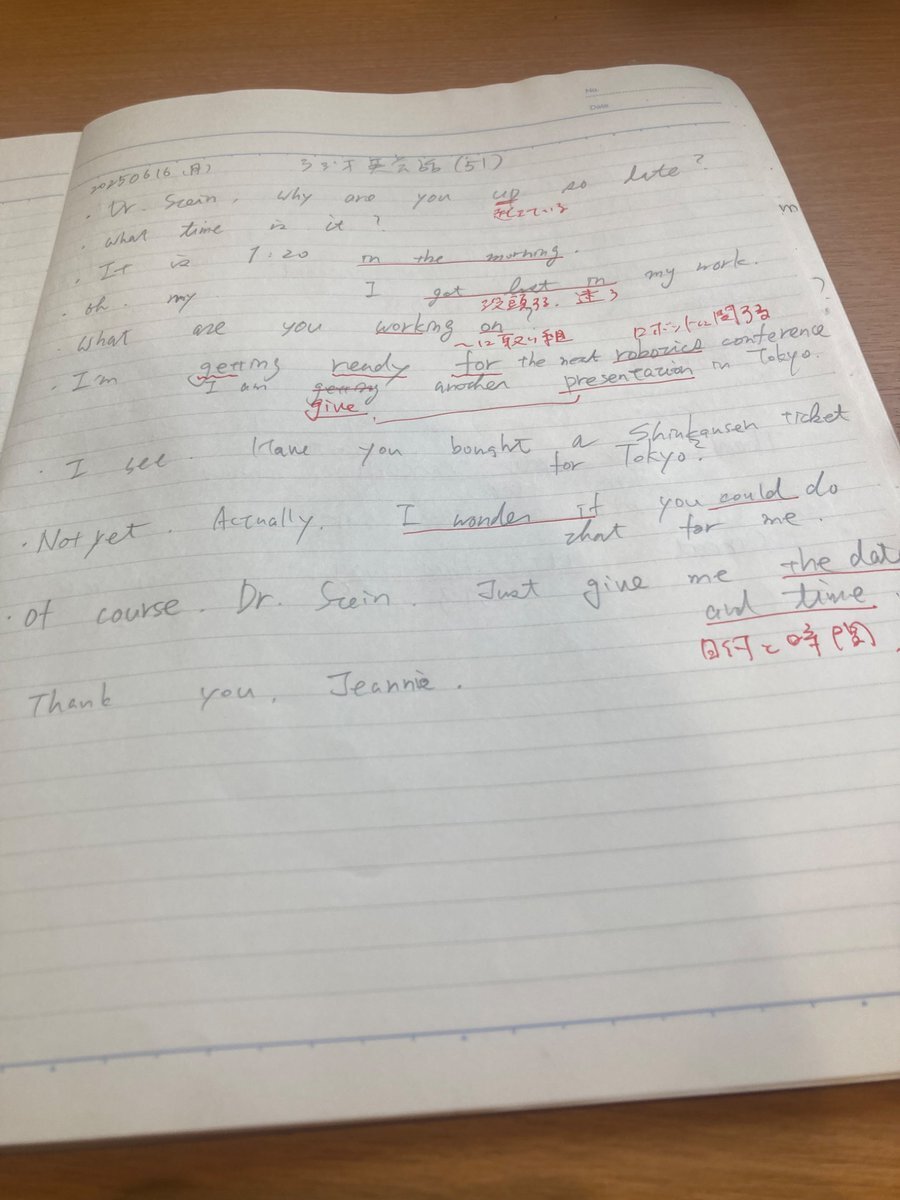 No.
Date
20250616(月) 英会話(51)
· Dr. Stein, why are you up so late?
起きている
· what time is it?
m
· It is 1:20 in the morning.
· oh. my I got lost in my work.
没頭する. 迷う
what are you working on?
~に取り組
ロボットに関する
· I'm getting ready for the next robotics conference?
I am getting another presentation in Tokyo.
give
· I see. Have you bought a Shinkansen ticket
for Tokyo?
· Not yet. Actually. I wonder if you could do
that for me.
· Of course. Dr. Stein. Just give me the dat
and time.
日付と時間
Thank you, Jeannie.